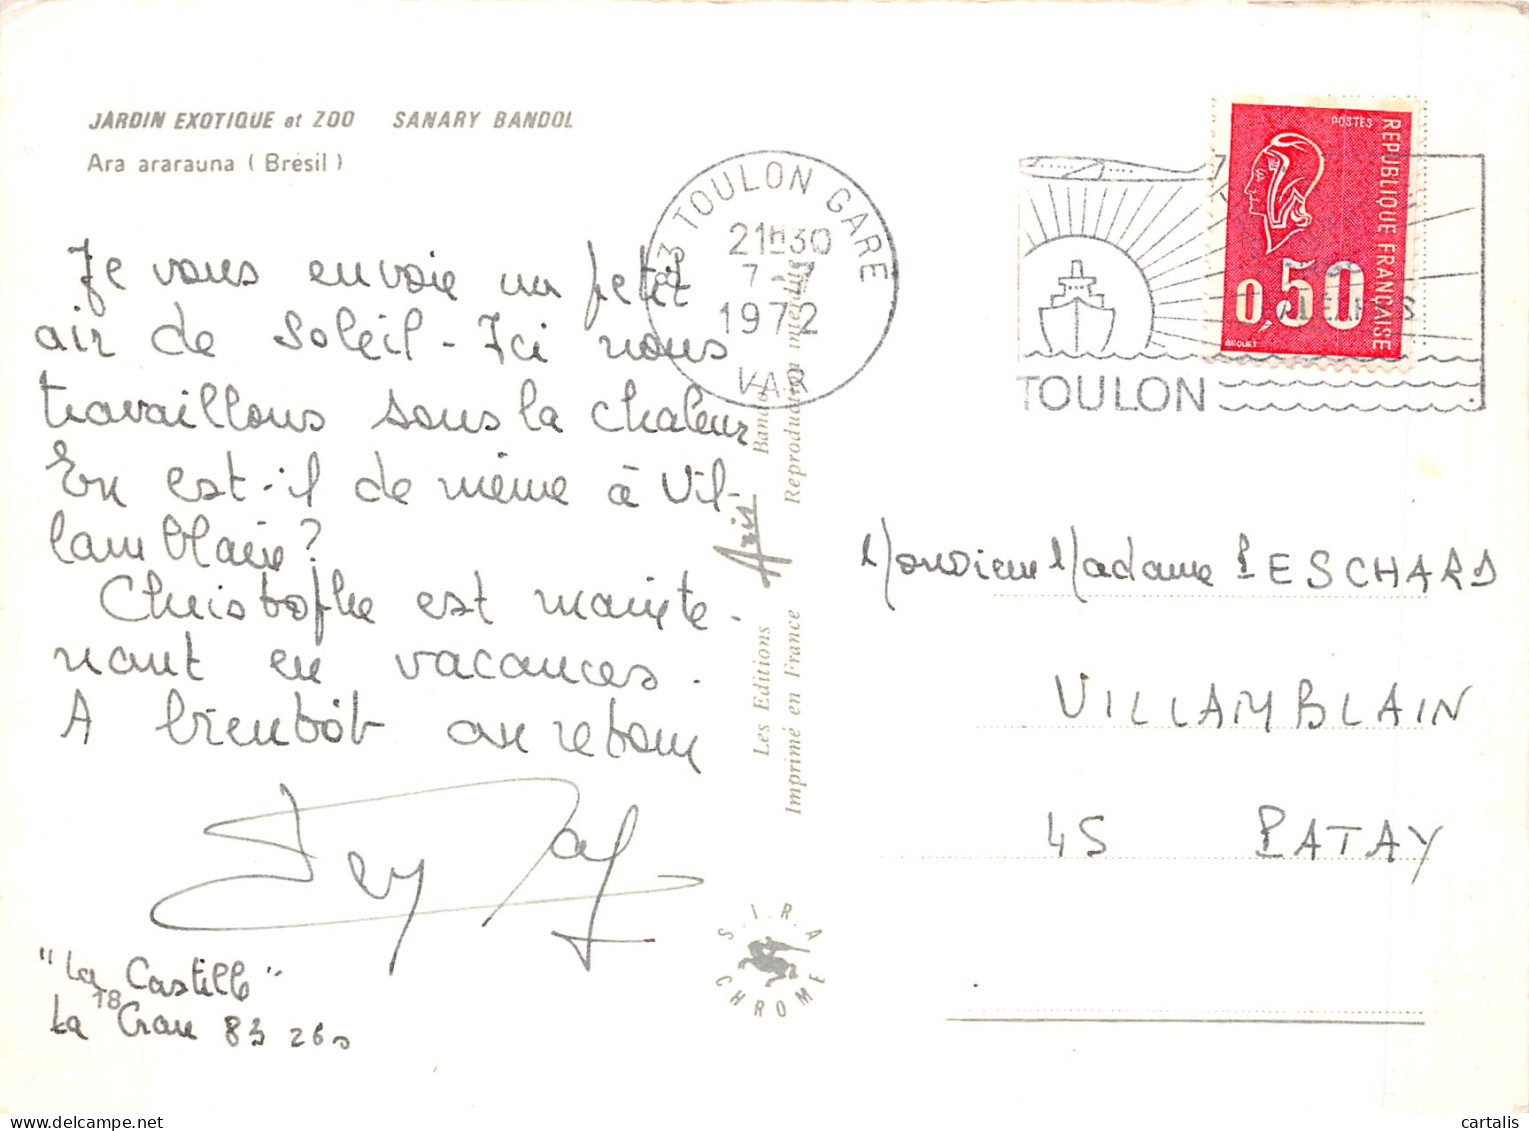 JARDIN EXOTIQUE et ZOO SANARY BANDOL
Ara ararauna ( Brésil )
Je vous envoie un petit
air de Soleil - Ici nous
travaillons sous la chaleur
En est-il de même à Vil-
lamblain ?
Christophe est mainte-
nant en vacances.
A bientôt au retour
"La Castille"
18
La Crau 83 260
83 TOULON GARE
21H30
7 - 7
1972
VAR
Les Editions Aris Bandol
Imprimé en France Reproduction interdite
S.I.R.A
CHROME
POSTES
REPUBLIQUE FRANÇAISE
0,50
BEQUET
TOULON
Monsieur Madame PESCHARD
VILLAMBLAIN
45 PATAY
cartalis